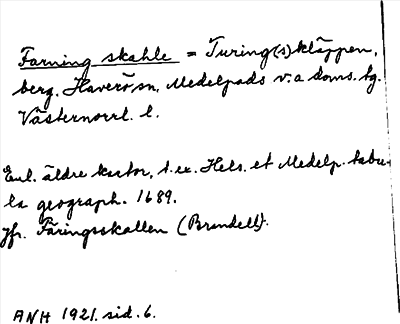 Farning skahle = Turing(s)kläppen,
berg. Haverö sn, Medelpads v:a doms. tg.
Västernorrl. l.
Enl. äldre kartor, t.ex. Hels. et Medelp. tabu-
la geograph. 1689.
Jfr. Färingsskallen (Brundell).
ANH 1921. sid. 6.